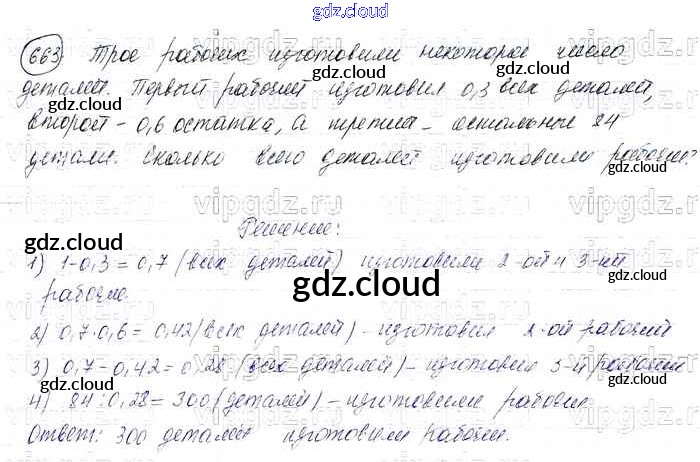 gdz.cloud
663) Трое рабочих изготовили некоторое число
деталей. Первый рабочий изготовил 0,3 всех деталей,
второй - 0,6 остатка, а третий - остальные 84
детали. Сколько всего деталей изготовили рабочие?
Решение:
1) 1-0,3 = 0,7 (всех деталей) изготовили 2-ой и 3-ий
рабочие.
2) 0,7·0,6 = 0,42 (всех деталей) - изготовил 2-ой рабочий
3) 0,7-0,42 = 0,28 (всех деталей) - изготовил 3-й рабочий
4) 84:0,28 = 300 (деталей) - изготовили рабочие.
Ответ: 300 деталей изготовили рабочие.
gdz.cloud
vipgdz.ru